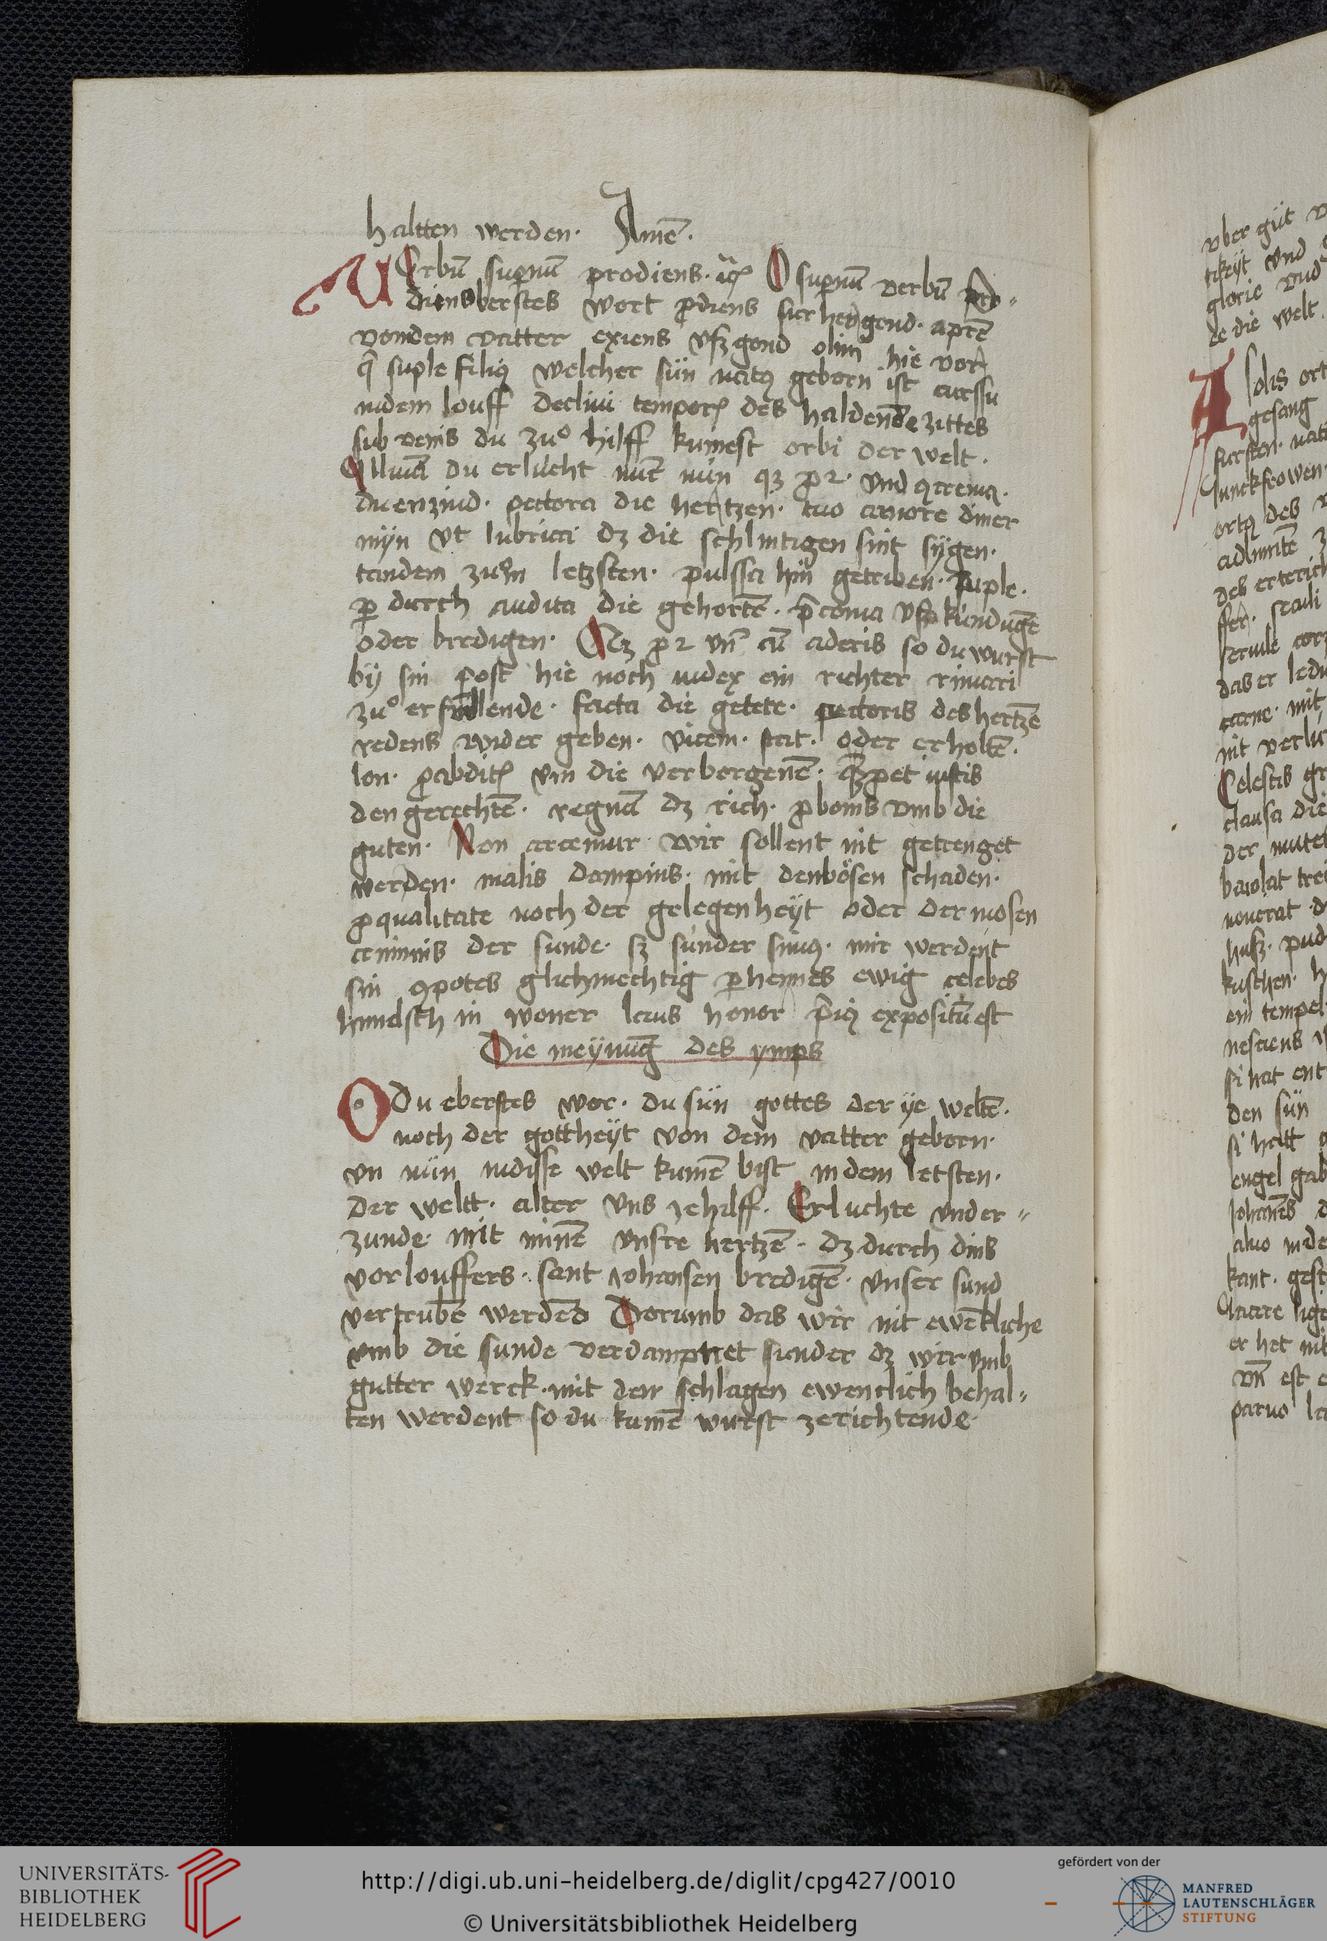 haltten werden. Amē.
VErbū supnū prodiens. O supnū verbū pro-
diens berstes wort pdiens fur her gond. aprē
vondem vatter exiens vſz gond olim hie vor
q̄ suple filiꝯ welcher sün natꝯ geborn ist cursu
indem louff declini temporꝭ des haldende zittes
sub venis du zuͦ hilff kumest orbi der welt.
Illuīa du erlücht nūc nün qꝫ pꝛ. vnd ꝯcrema.
du enzind. pectora die hertzen. tuo amore diner
myn vt lubrici dz die schlintigen sint sygen.
tandem zum letzsten. pulssa hin getriben. suple.
ꝑ durch audita die gehortē. p̄conia vſz kündugē
oder bredigen. Qꝫ pꝛ vn̄ cū aderis so du wurst
by sin post hie noch iudex ein richter rimari
zuͦ erfüllende. facta die getete. pectoris des hertzē
redens wider geben. vicem. stat. oder erholtē.
lon. ꝓabditꝭ vm die verborgenē. iustis
den gerechtē. regnā dz rich. ꝓbonis vmb die
guten. Non arcemur wir sollent nit getrenget
werden. malis dampnis. mit denbösen schaden.
ꝓqualitate noch der gelegenheyt oder der mosen
criminis der sunde. sꝫ sunder simꝯ. mir werdent
sin ꝯpotes glichmechtig ꝑhennes ewig celebes
himdsch in woner laus honor p̄iꝯ expositū est
Die meynūg des ymps
O Du eberstes wor. du sün gottes der ye weltē.
noch der gottheyt von dem vatter geborn.
vn nün indisse welt kumē bist in dem letsten.
der weltt. alter vns zehilff. Erluchte vnder-
zunde mit minē vnsre hertzē. dz durch dins
vorlouffers. sant Johansen bredigē. vnser sünd
vertrubē werdēd Dorumb das wir nit ewēkliche
vmb die sunde verdampnet sunder dz wir vmb
gutter werck. mit den schlagen ewenclich behal-
ten werdent so du kumē wurst zerichtende
vber güt
vnd
glorie vnd
ze die welt.
A solis ort
gesang
fursten. nat
Junckfrowen
ortꝯ des
des erterich
seculi
das er ledi
carne. mit
nit verlür
Celestis gr
clausa die
der mutet
baiolat tre
nouerat d
huſz. pud
kuschen. h
ein tempel
nesciens v
si hat ent
den sün
si hett
engel gab
Johanēs
aluo inde
kant. gest
er het nit
vn̄ est e
paruo la
UNIVERSITÄTS-
BIBLIOTHEK
HEIDELBERG
http://digi.ub.uni-heidelberg.de/diglit/cpg427/0010
© Universitätsbibliothek Heidelberg
gefördert von der
MANFRED
LAUTENSCHLÄGER
STIFTUNG